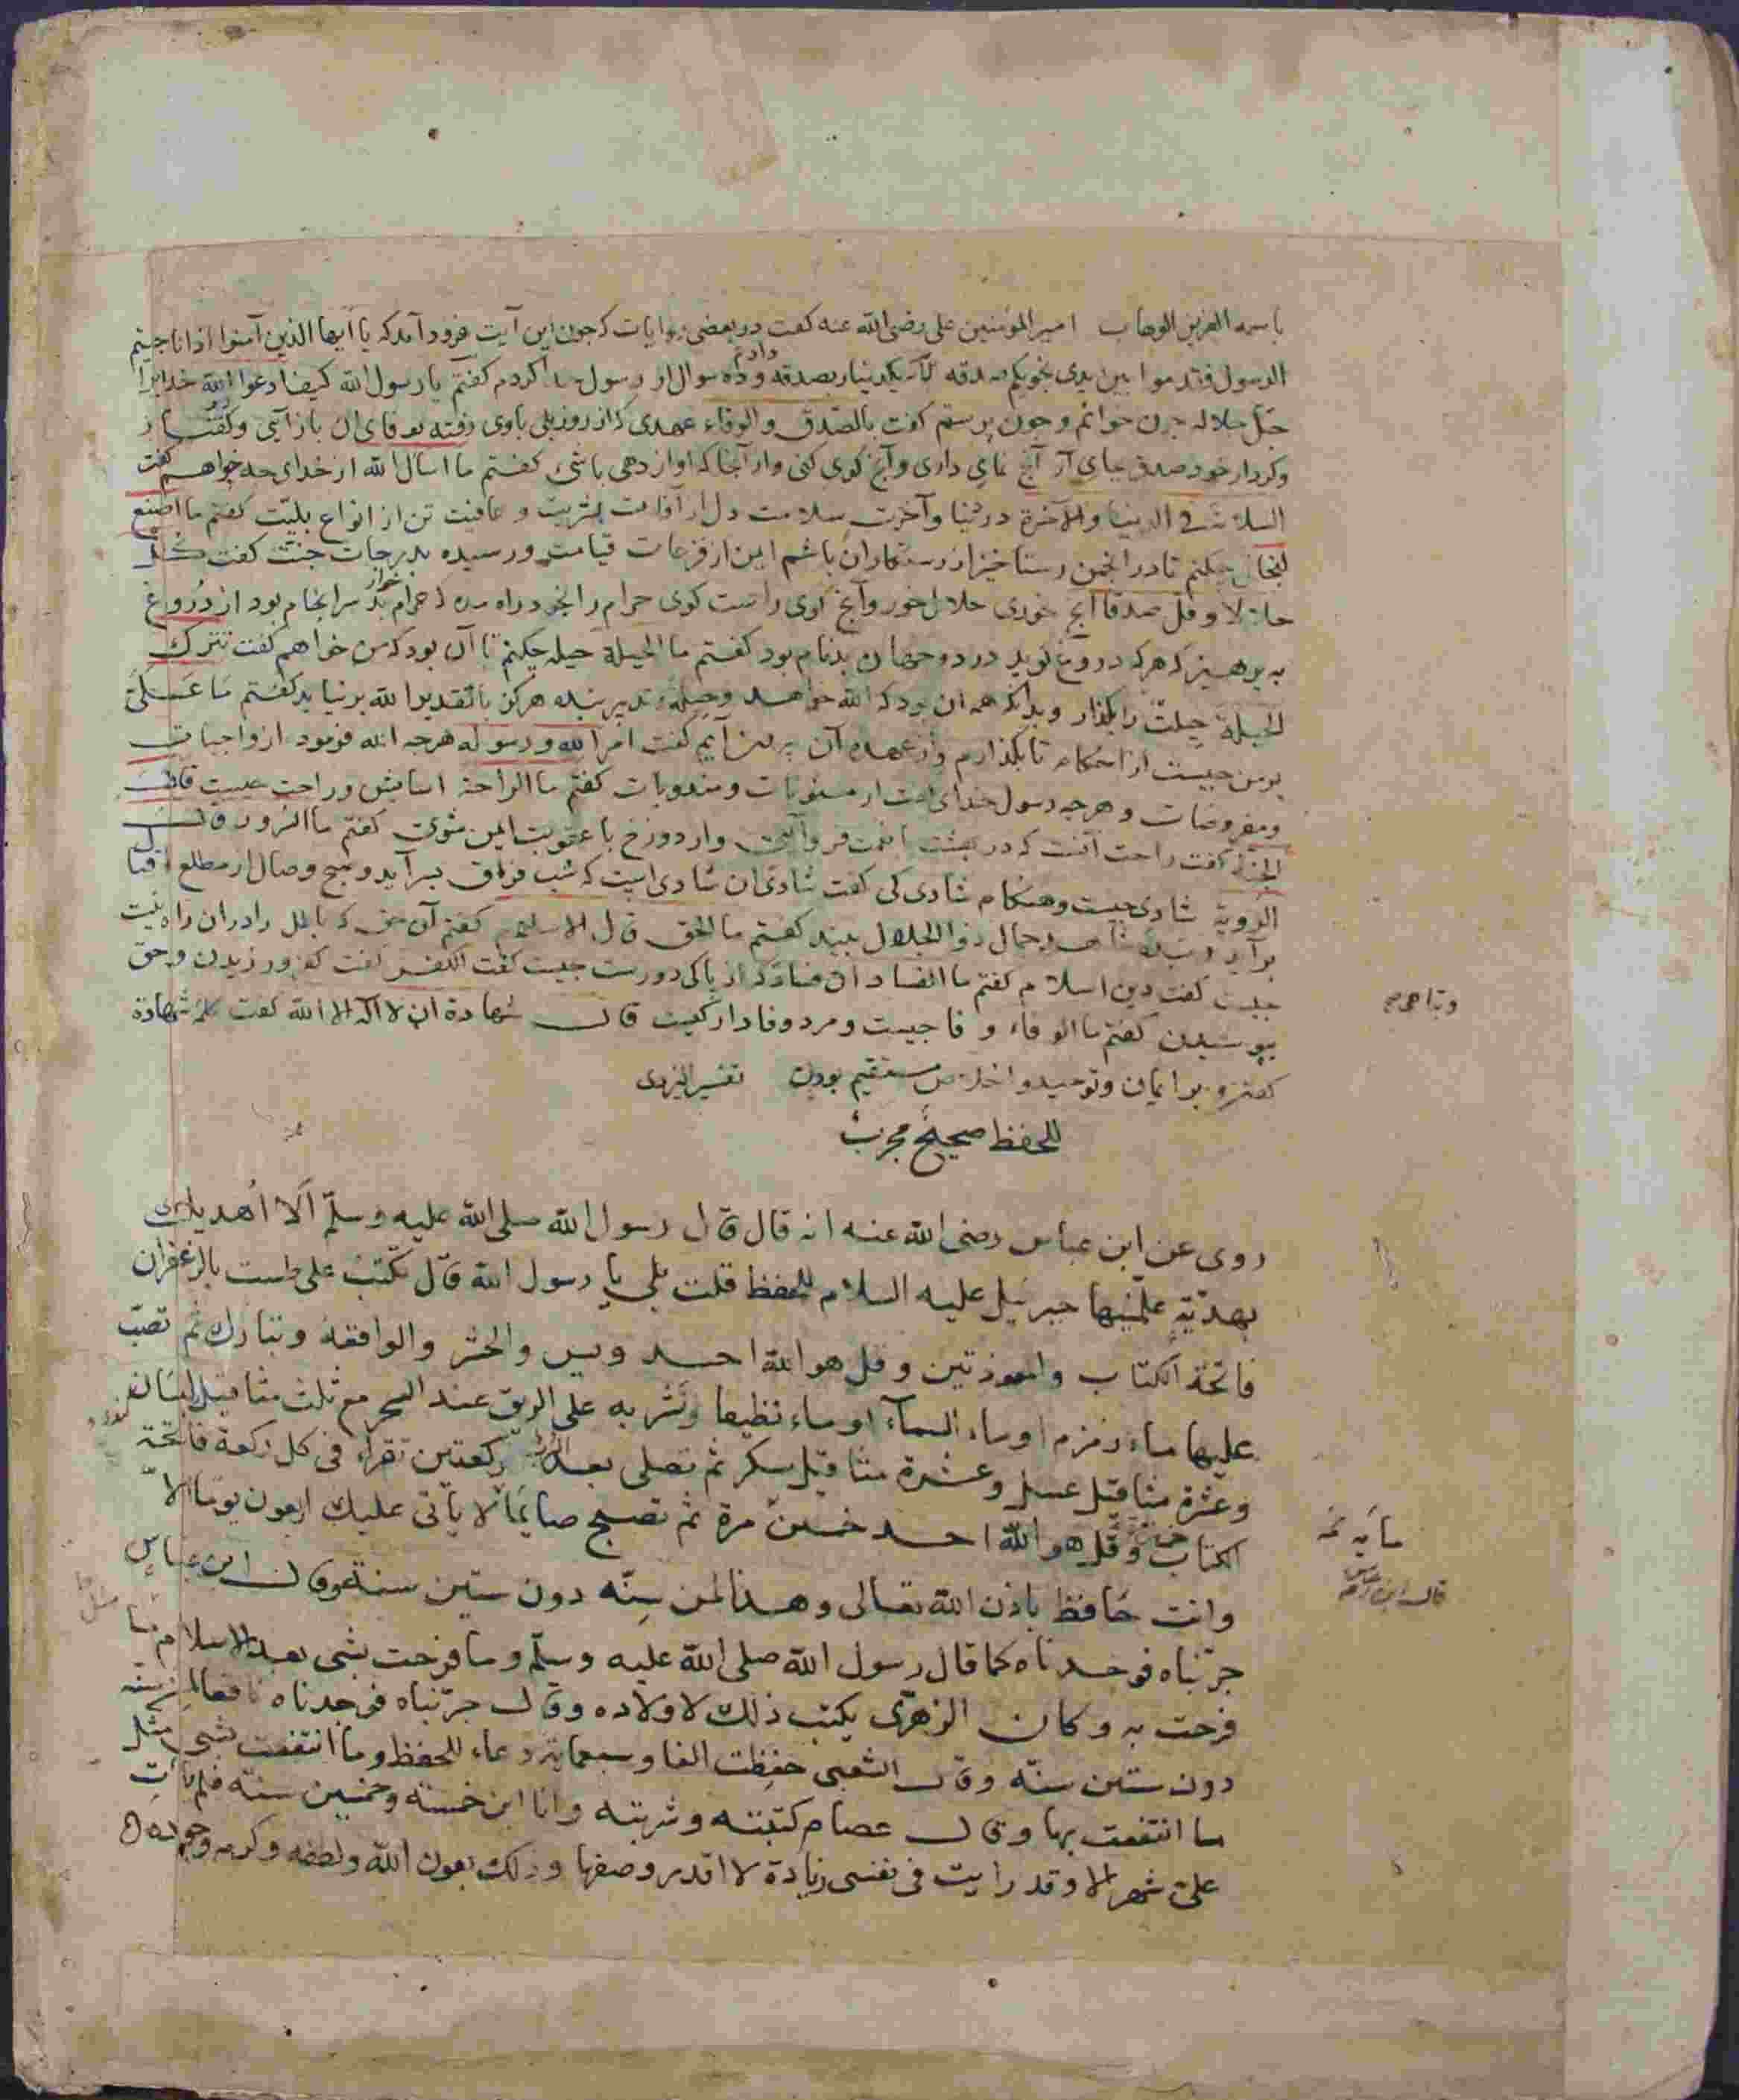 باسمه العزيز الوهاب امير المؤمنين على رضى الله عنه كفت در بعضى روايات كه جون اين آيت فرود آمد كه يا ايها الذين آمنوا اذا ناجيتم
الرسول فقدموا بين يدى نجويكم صدقه يكدينار بصدقه دادم و ده سوال از رسول كردم كفتم يا رسول الله كيف ادعوا الله خدايرا
جل جلاله جون خوانم و جون پرستم كفت بالصدق والوفاء عهدى كه از روز بلى باوى رفته بوفاى ان باز آيى و كفتار
و كردار خود صدق بجاى آر آنج نماى دارى و آنج كوى كنى و از آنجا كه اواز دهى باشى كفتم ما اسال الله از خداى چه خواهم كفت
السلامة فى الدنيا والآخرة در دنيا و آخرت سلامت دل از آفات بشريت و عافيت تن از انواع بليت كفتم ما اصنع
لنجاتى چكنم تا در انجمن رستاخيز از رستكاران باشم ايمن از فزعات قيامت و رسيده بدرجات جنت كفت كل
حلالا و قل صدقا آنج خورى حلال خور و آنج كوى راست كوى حرام را بخود راه مده كه حرام خوار بد سرانجام بود از دروغ
به پرهيز كه هركه دروغ كويد در دو جهان بدنام بود كفتم ما الحيلة حيله چكنم تا آن بود كه من خواهم كفت تترك
الحيلة حيلت را بكذار و بدانكه همه ان بود كه الله خواهد و حيله و تدبير بنده هركز با تقدير الله برنيايد كفتم ما على
بر من چيست از احكام تا بكذارم و از عهده آن بيرون آيم كفت امر الله و رسوله هرچه الله فرمود از واجبات
و مفروضات و هرچه رسول خداى كفت از مسنونات و مندوبات كفتم ما الراحة اسايش و راحت چيست قال
الجنة كفت راحت آنست كه در بهشت نعمت فرو آيى و از دوزخ با عقوبت ايمن شوى كفتم ما السرور قال
الرؤية شادى چيست و هنكام شادى كى كفت شادى ان شادى است كه شب فراق بسر آيد و صبح وصال از مطلع اقبال
برآيد و بنده جمال ذو الجلال بيند كفتم ما الحق قال الاسلام كفتم آن حق كه باطل را در ان راه نيست
چيست كفت دين اسلام كفتم ما الفساد ان فساد كه از پاكى دورست چيست كفت الكفر كفت كفر ورزيدن و حق
بپوشيدن كفتم ما الوفاء وفا چيست و مرد وفادار كيست قال شهادة ان لا اله الا الله كفت كلمه شهادة
كفتن و بر ايمان و توحيد و اخلاص مستقيم بودن تفسير اليزدى
وتباهى
للحفظ صحيح مجرب
روى عن ابن عباس رضى الله عنه انه قال قال رسول الله صلى الله عليه وسلم الا اُهد يك
بهديةٍ علمنيها جبرئيل عليه السلام للحفظ قلت بلى يا رسول الله قال تكتب على طست بالزعفران
فاتحة الكتاب والمعوذتين وقل هو الله احد ويس والحشر والواقعة وتبارك ثم تصبّ
عليها ماء زمزم او ماء السمآء او ماء نظيفا وتشربه على الريق عند السحر مع ثلث مثاقيل لبان
وعشرة مثاقيل عسل وعشرة مثاقيل سكر ثم تصلى بعد الشرب ركعتين تقراء فى كل ركعة فاتحة
الكتاب وقل هو الله احد خمسين مرة ثم تصبح صايما لا ياتى عليك اربعون يوما الا
وانت حافظ باذن الله تعالى وهذا لمن سنّه دون ستين سنة وقال ابن عباس
جرّبناه فوجدناه كما قال رسول الله صلى الله عليه وسلم وما فرحت بشى بعد الاسلام ما
فرحت به وكان الزهرى يكتب ذلك لاولاده وقال جرّبناه فوجدناه نافعا لمن سنّه
دون ستين سنة وقال الشعبى حفظت الفا وسبعماية دعاء للحفظ وما انتفعت بشى مثل
ما انتفعت بها وقال عصام كتبته وشربته وانا ابن خمسة وخمسين سنة فلم يات
على شهر الا وقد رايت فى نفسى زيادة لا اقدر وصفها وذلك بعون الله ولطفه وكرمه وجوده